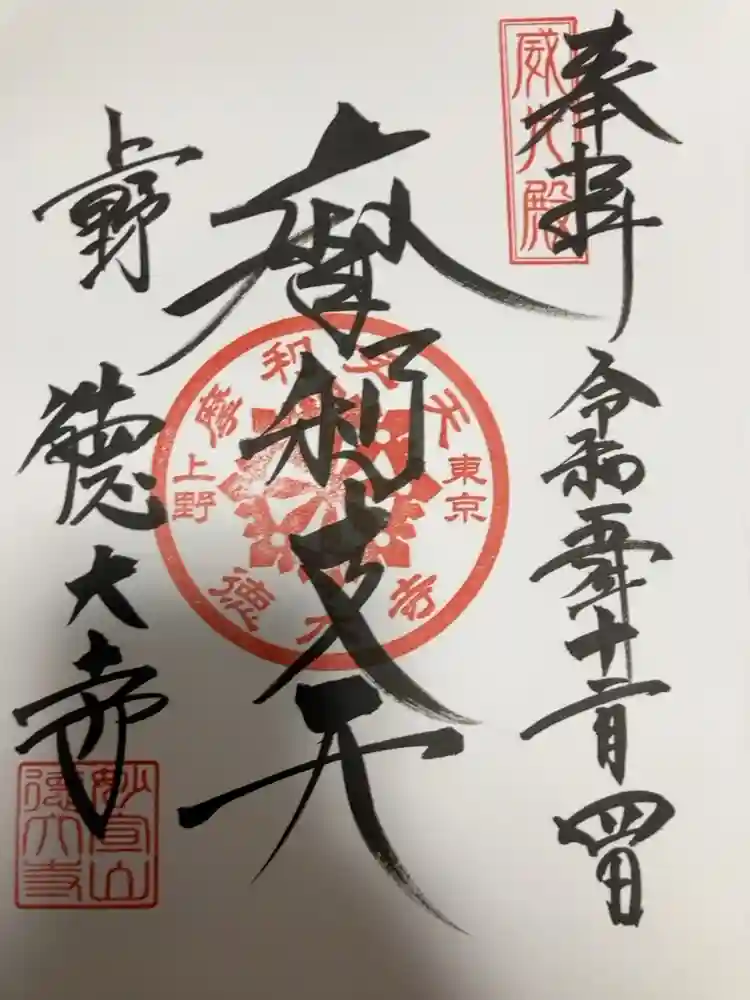 奉拝
威光殿
令和五年十二月四日
摩利支天
摩利支天
東京
上野
徳大寺
上野
徳大寺
妙宣山
徳大寺